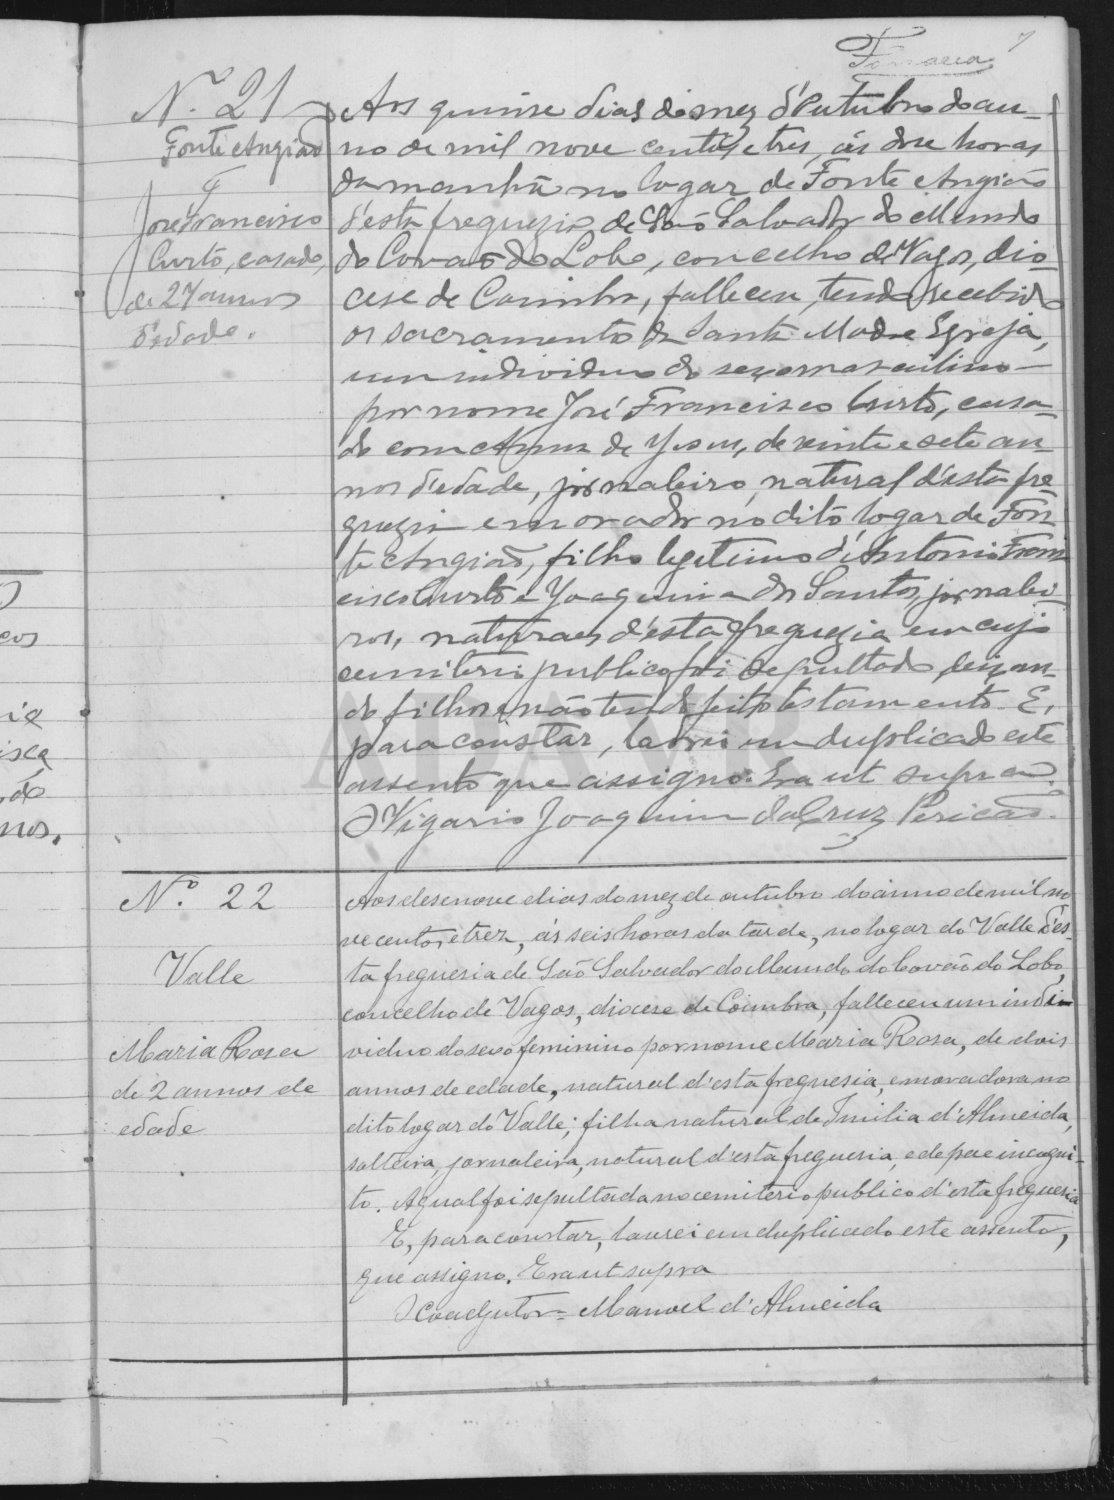 7
N.º 21
Fonte Angião
José Francisco
Curto, casado,
de 27 annos
d'edade.
Aos quinse dias do mez d'Outubro do an-
no de mil nove centos e tres, ás doze horas
da manhã no logar de Fonte Angião
d'esta freguezia de São Salvador do Mundo
do Covão do Lobo, concelho de Vagos, dio-
cese de Coimbra, falleceu, tendo recebido
os sacramentos da Santa Madre Egreja,
um individuo do sexo masculino
por nome José Francisco Curto, casa-
do com Anna de Jesus, de vinte e sete an-
nos d'edade, jornaleiro, natural d'esta fre-
guezia e morador no dito logar de Fon-
te Angião, filho legitimo d'Antonio Fran-
cisco Curto e Joaquina dos Santos, jornalei-
ros, naturaes d'esta freguezia em cujo
cemiterio publico foi sepultado, deixan-
do filhos e não tendo feito testamento. E,
para constar, lavrei em duplicado este
assento que assigno. Era ut supra.
O Vigario Joaquim da Cruz Pericão.
N.º 22
Valle
Maria Rosa
de 2 annos de
edade
Aos desenove dias do mez de outubro do anno de mil no
ve centos e trez, ás seis horas da tarde, no logar do Valle d'es-
ta freguesia de São Salvador do Mundo do Covão do Lobo,
concelho de Vagos, diocese de Coimbra, falleceu um indi-
viduo do sexo feminino por nome Maria Rosa, de dois
annos de edade, natural d'esta freguesia, e moradora no
dito logar do Valle; filha natural de Emilia d'Almeida,
solteira, jornaleira, natural d'esta freguesia, e de pae incogni-
to. A qual foi sepultada no cemiterio publico d'esta freguesia
E, para constar, lavrei em duplicado este assento,
que assigno. Era ut supra
O Coadjutor = Manoel d'Almeida
ADAVR